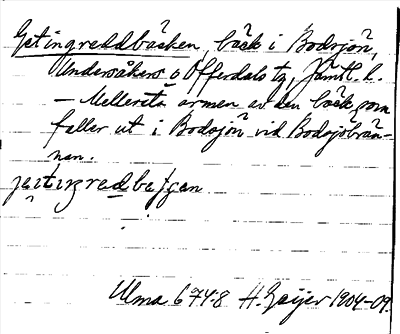 Getingreddbäcken, bäck i Bodsjön,
Undersåkers o Offerdals tg, Jämtl. l.
— Mellersta armen av den bäck som
faller ut i Bodsjön vid Bodsjöbrän-
nan.
Ulma 674:8 H. Geijer 1904-09.